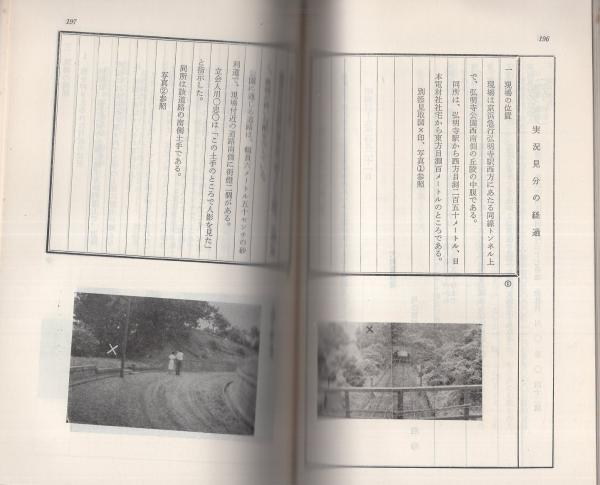 196
実況見分の経過
一 現場の位置
現場は京浜急行弘明寺駅西方にあたる同線トンネル上
で、弘明寺公園西南側の丘陵の中腹である。
同所は、弘明寺駅から西方目測二百五十メートル、日
本電材社社宅から東方目測百メートルのところである。
別添見取図×印、写真①参照
①
×
197
園に達した道路は、幅員六メートル五十センチの砂
利道で、現場付近の道路南側に街燈二個がある。
立会人用〇忠〇は「この土手のところで人影を見た」
と指示した。
同所は該道路の南側土手である。
写真②参照
×